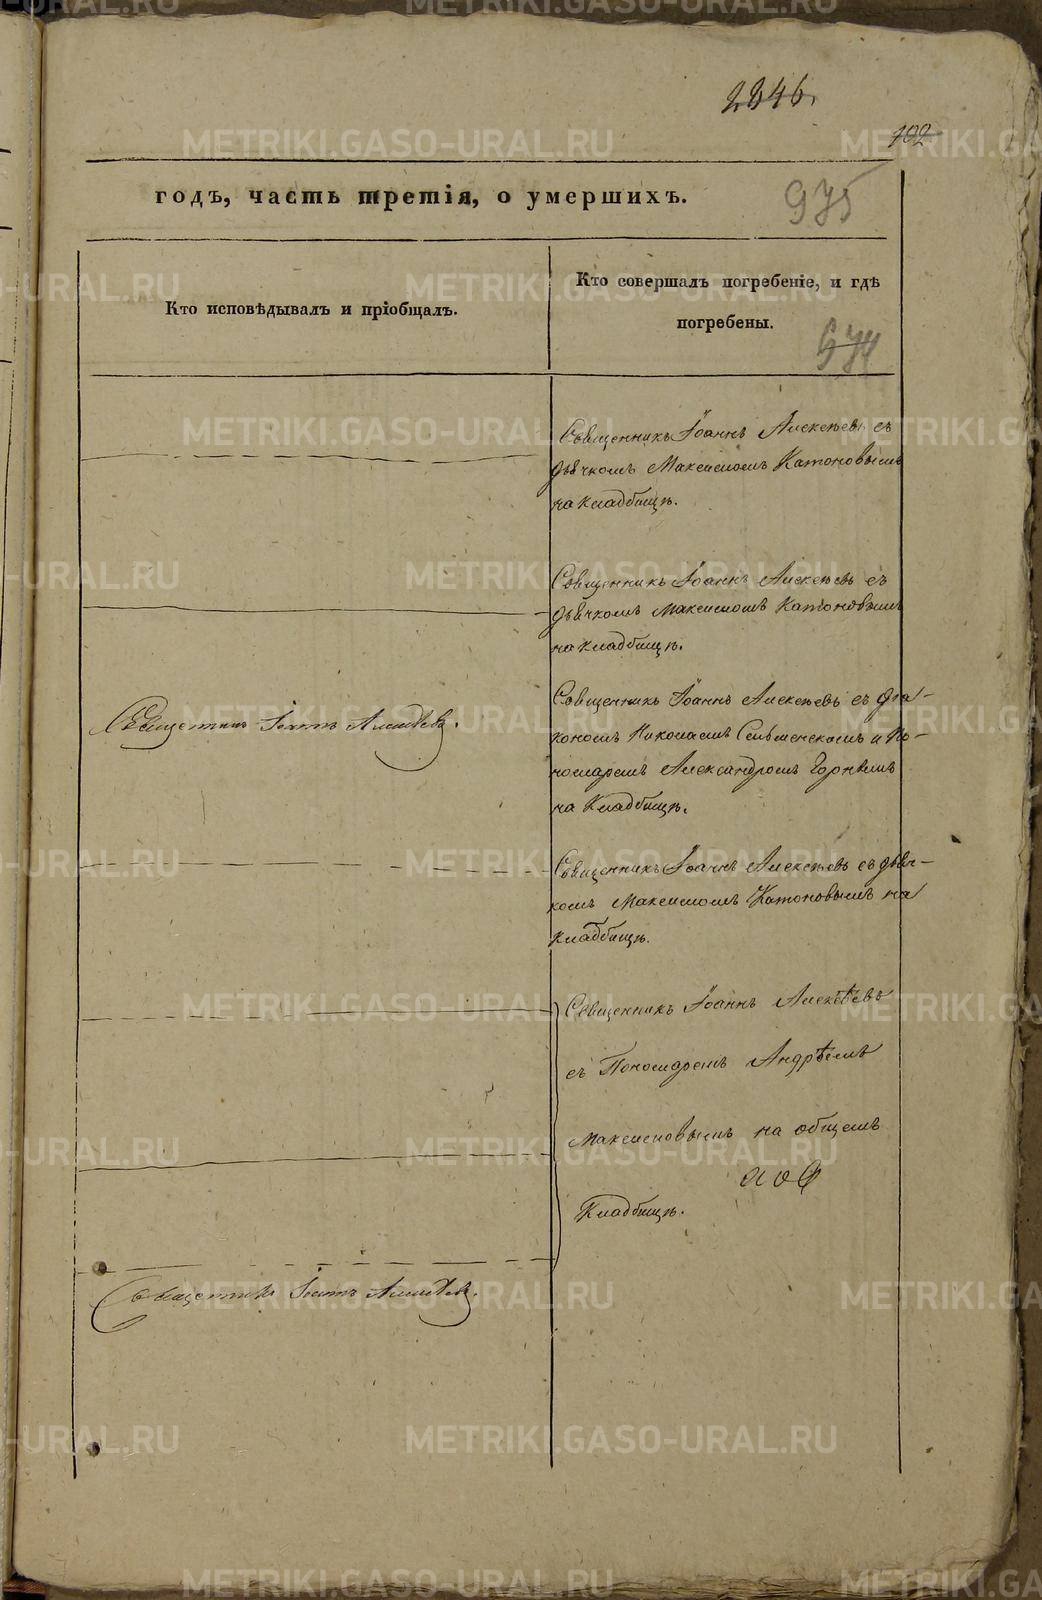 2846.
102
годъ, часть третія, о умершихъ.
975
Кто исповѣдывалъ и пріобщалъ.
Кто совершалъ погребеніе, и гдѣ
погребены.
974
Священникъ Іоаннъ Алексѣевъ съ
дьячкомъ Максимомъ Катоновымъ
на кладбищѣ.
Священникъ Іоаннъ Алексѣевъ съ
дьячкомъ Максимомъ Катоновымъ
на кладбищѣ.
Священникъ Іоаннъ Алексѣевъ.
Священникъ Іоаннъ Алексѣевъ съ діа-
кономъ Николаемъ и По-
номаремъ Александромъ
на Кладбищѣ.
Священникъ Іоаннъ Алексѣевъ съ дьяч-
комъ Максимомъ Катоновымъ на
кладбищѣ.
Священникъ Іоаннъ Алексѣевъ
съ Пономаремъ Андрѣемъ
Максимовымъ на общемъ
Кладбищѣ.
Священникъ Іоаннъ Алексѣевъ.
METRIKI.GASO-URAL.RU